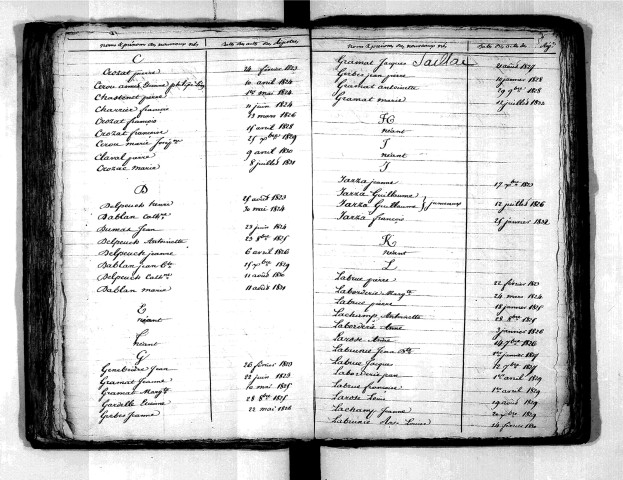 Noms & prénoms des nouveaux nés. Date des actes des Registres
C
Crozat pierre 24 février 1823
Cerou 10 avril 1824
Chastenet pierre 1er mai 1824
Charrier françois 11 juin 1824
Crozat françois 13 mars 1826
Crozat françoise 15 avril 1828
Cerou marie 25 1829
Claval pierre 9 avril 1830
Crozat marie 8 juillet 1831
D
Delpeuch henri 28 avril 1823
Bablan Cathne 30 mai 1824
Dumas Jean 23 juin 1824
Delpeuch Antoinette 23 8bre 1825
Delpeuch jeanne 6 avril 1826
Bablan jean Bte 15 1829
Delpeuch Cathne 11 août 1830
Bablan marie 11 août 1831
E
néant
F
néant
G
Genebrière Jean 26 février 1823
Gramat Jeanne 22 juin 1823
Gramat Margte 10 mai 1825
Gardelle Etienne 28 8bre 1825
Gerbes Jeanne 22 mai 1826
Noms & prénoms des nouveaux nés Date des actes des Reg.
Gramat Jacques Jaillac 4 août 1827
Gerbes jean pierre 10 janvier 1828
Gramat antoinette 29 9bre 1828
Gramat marie 12 juillet 1832
H
néant
I
néant
J
Jarza jeanne 17 1823
Jarza Guillaume
Jarza Guillaume } jumeaux 12 juillet 1826
Jarza françois 25 janvier 1832
K
néant
L
Labrue pierre 22 février 1823
Laborderie Margte 24 mars 1824
Labrue pierre 18 janvier 1825
Lachamp Antoinette 28 8bre 1825
Laborderie Anne 3 janvier 1826
Larose André 14 7bre 1826
Labrunie Jean Bte 1er janvier 1827
Labrue Jacques 12 7bre 1827
Laborderie jean 1er avril 1829
Labrue françoise 1er avril 1829
Larose Louis 29 août 1829
Lachamp Jeanne 1829
Labrunie Anne Louise 14 février